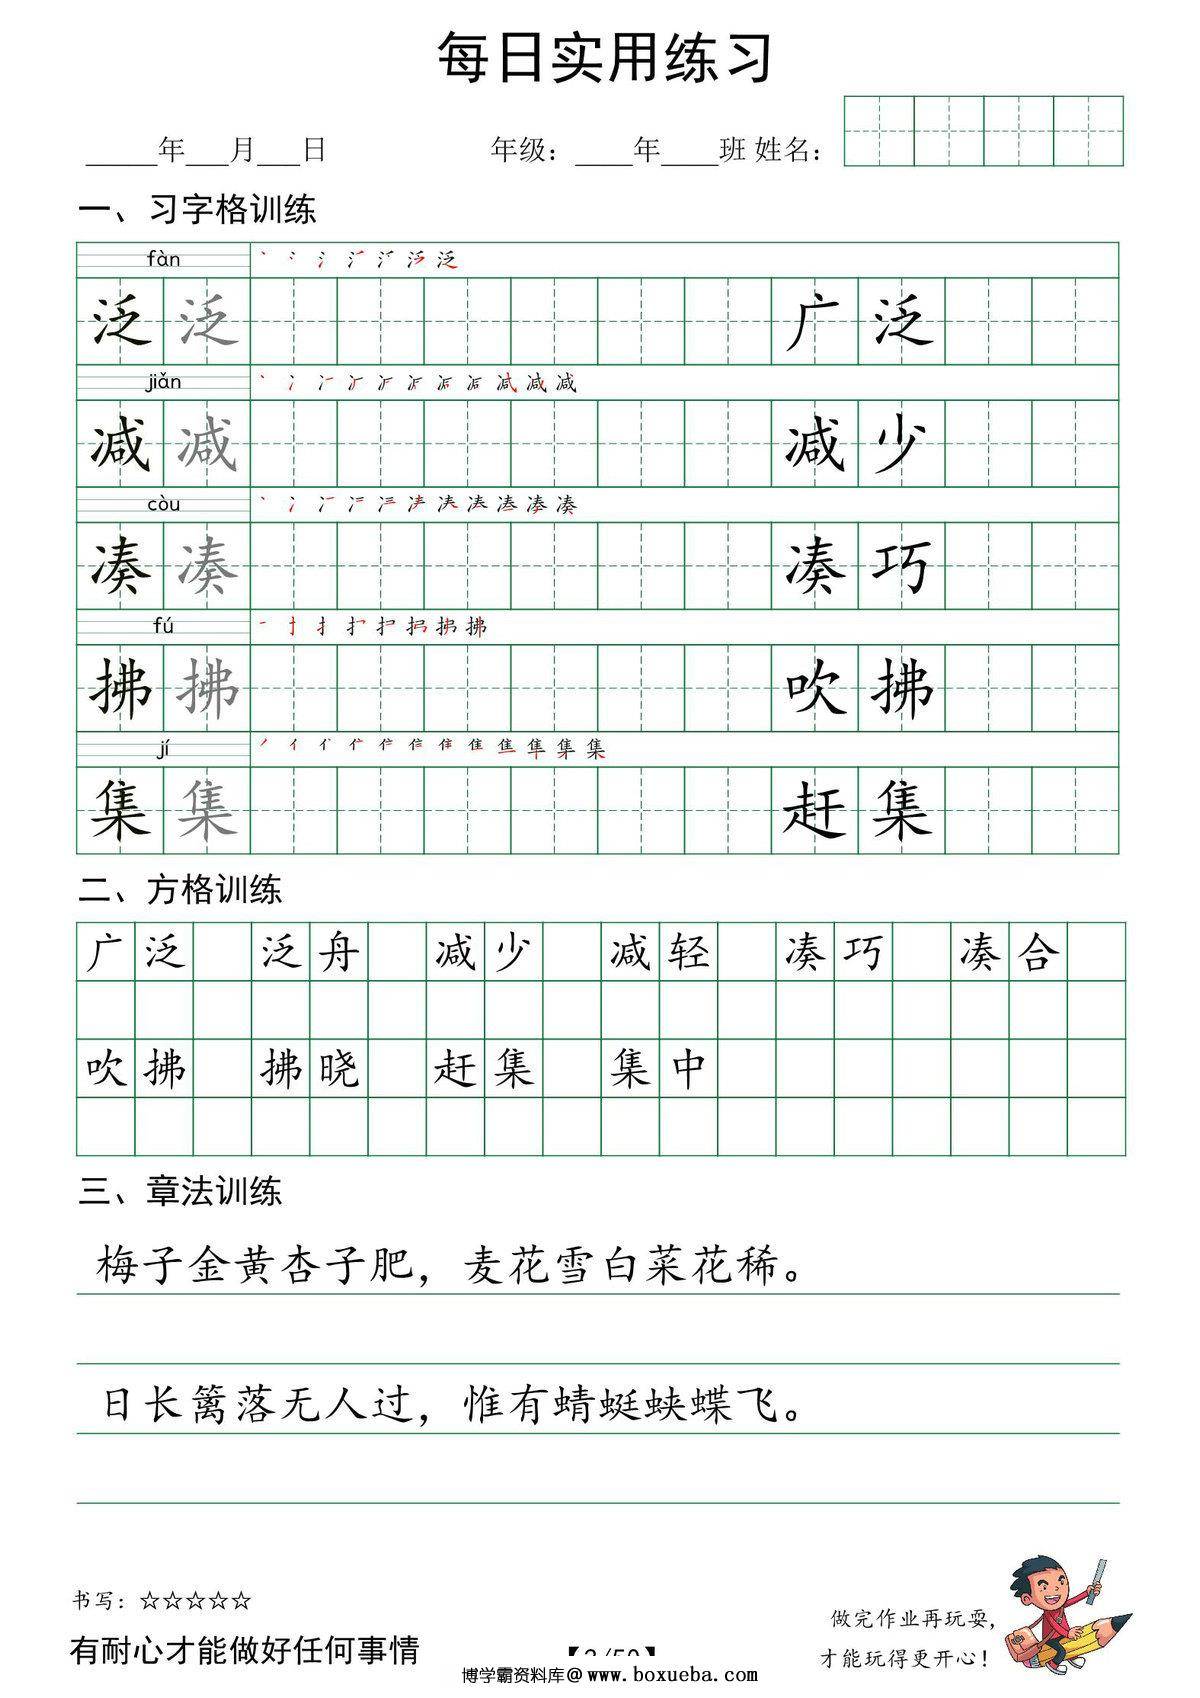 每日实用练习
____年___月___日 年级：____年____班 姓名：
一、习字格训练
fàn
泛 泛 广 泛
jiǎn
减 减 减 少
còu
凑 凑 凑 巧
fú
拂 拂 吹 拂
jí
集 集 赶 集
二、方格训练
广泛 泛舟 减少 减轻 凑巧 凑合
吹拂 拂晓 赶集 集中
三、章法训练
梅子金黄杏子肥，麦花雪白菜花稀。
日长篱落无人过，惟有蜻蜓蛱蝶飞。
书写：☆☆☆☆☆
做完作业再玩耍，
有耐心才能做好任何事情
才能玩得更开心！
博学霸资料库@www.boxueba.com